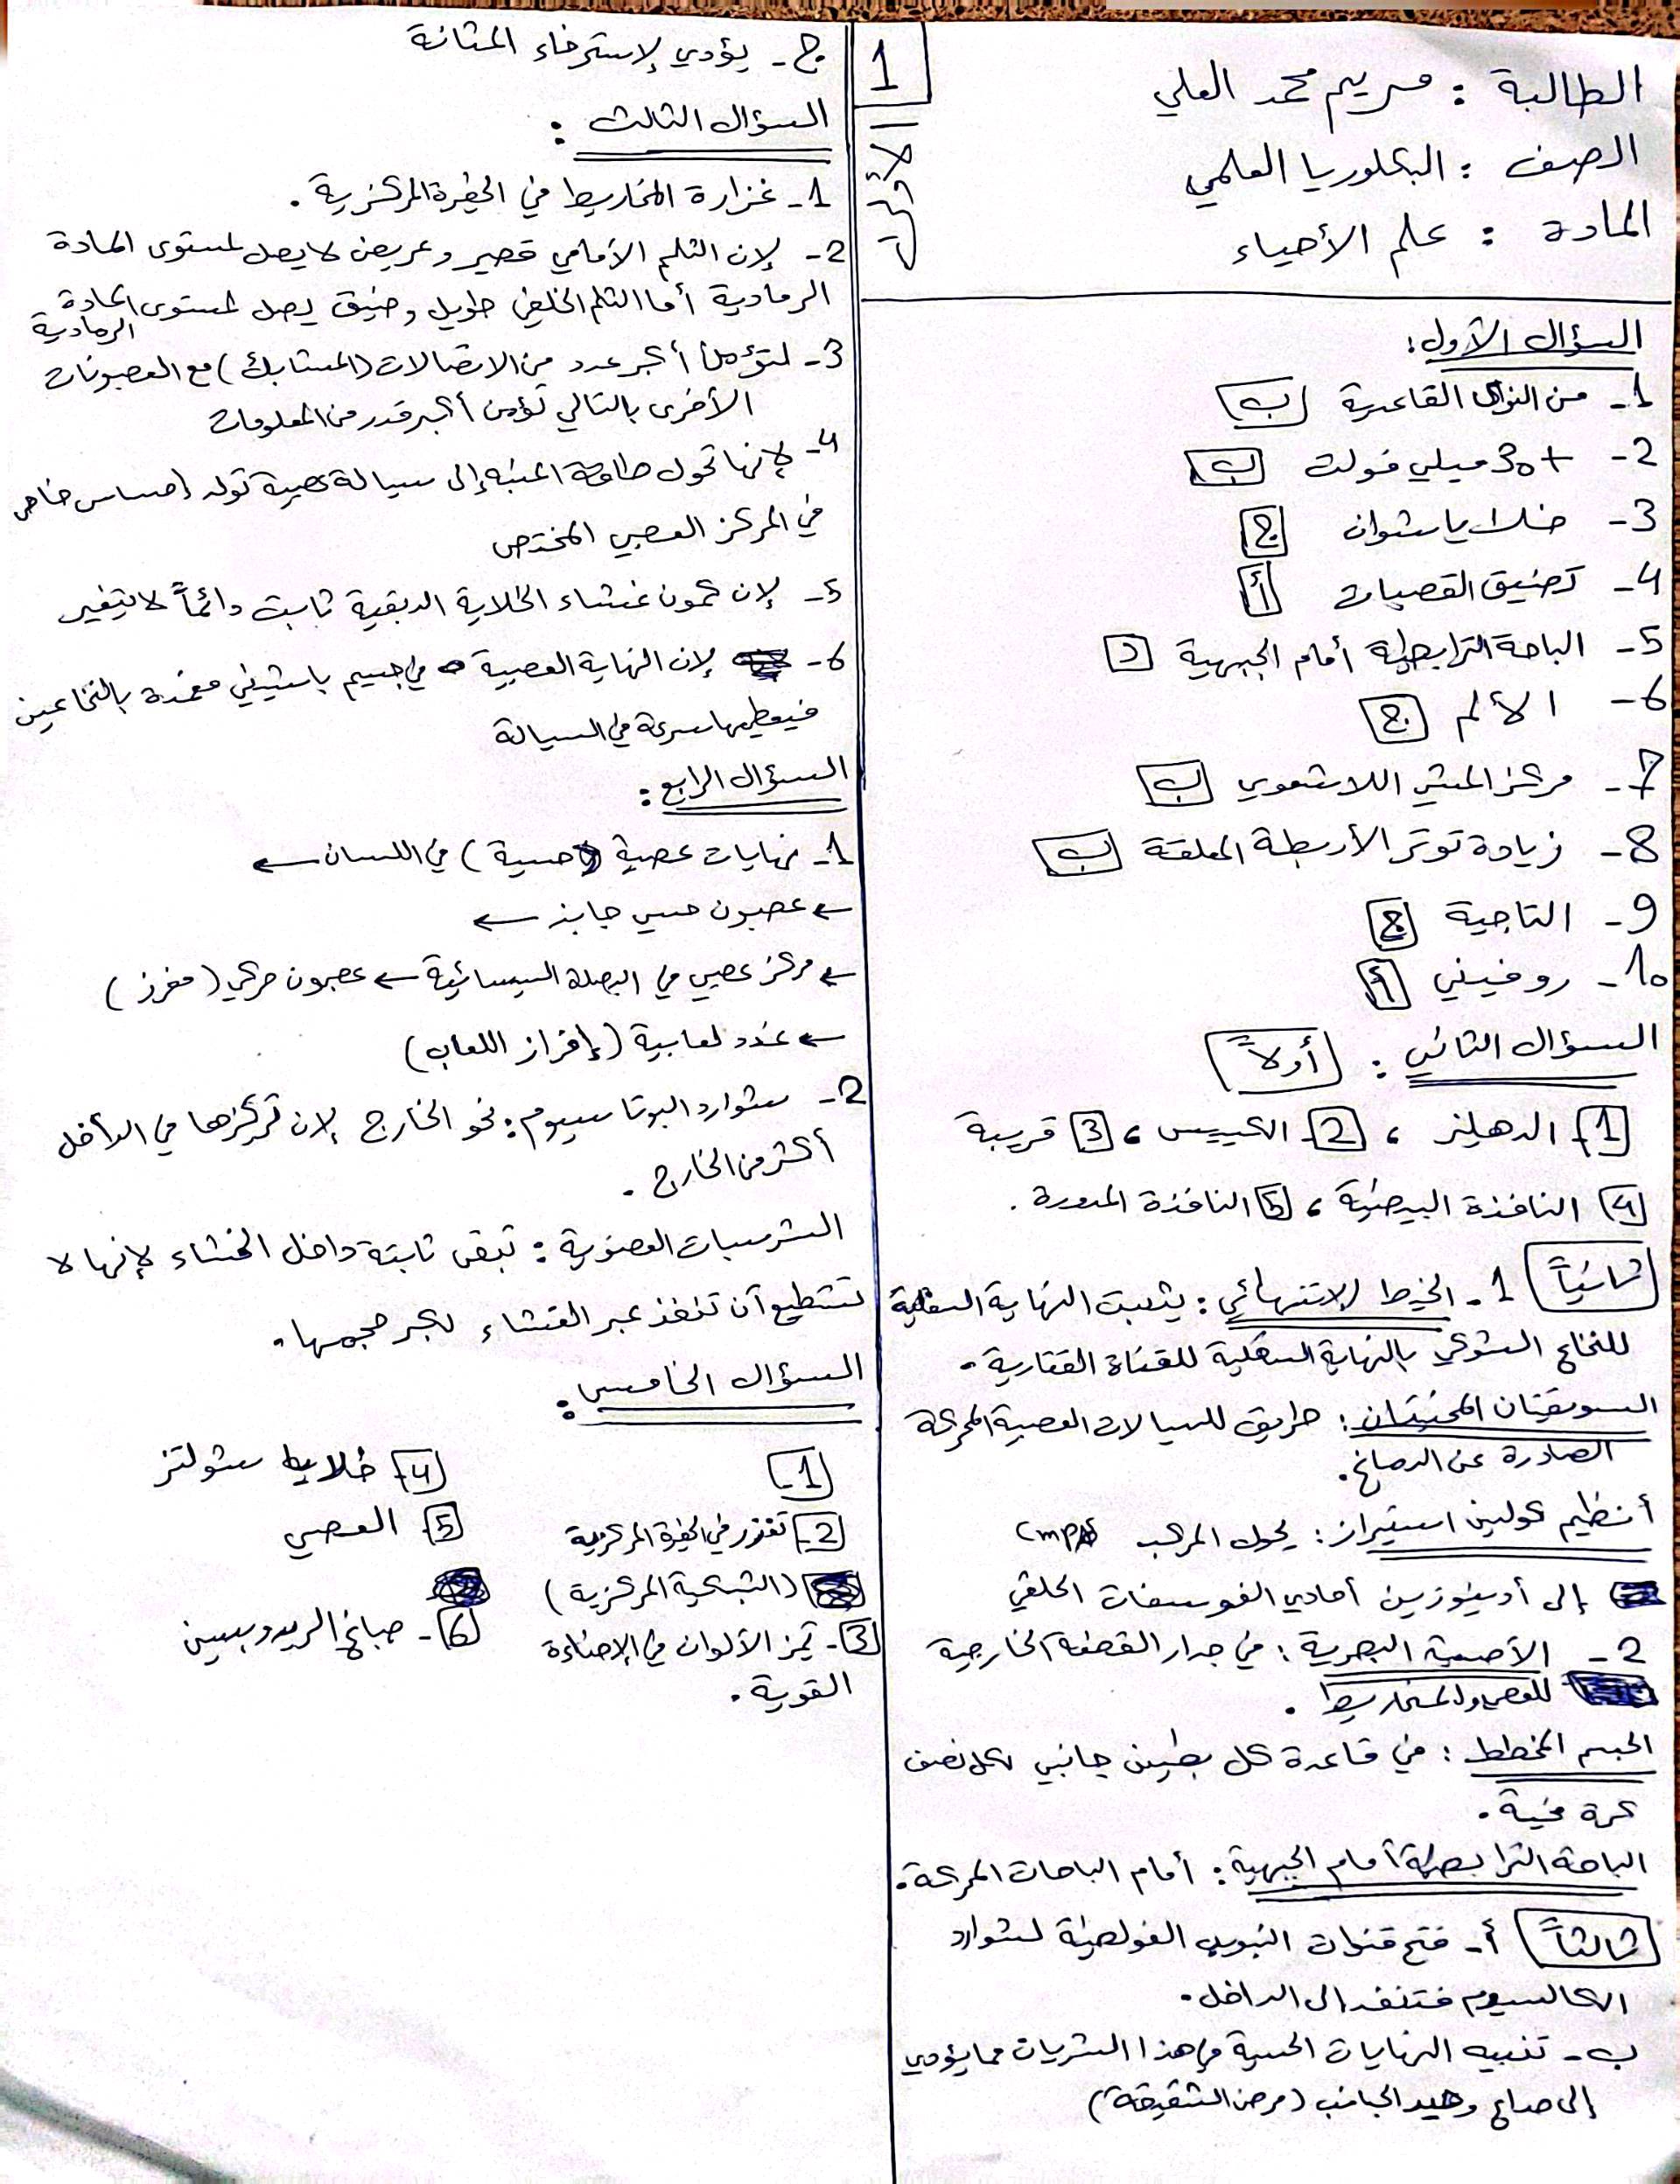 الطالبة : مريم محمد العلي
الصف : البكلوريا العلمي
المادة : علم الأحياء
1
السؤال الأول:
1- من النوى القاعدية ب
2- +30 ميلي فولت ب
3- خلايا شوان ج
4- تضيق القصبات أ
5- الباحة الترابطية أمام الجبهية د
6- الألم ج
7- مركز المشي اللاشعوري ب
8- زيادة توتر الأربطة المعلقة ب
9- التاجية ج
10- روفيني أ
السؤال الثاني : أولاً
1- الدهليز ، 2- الكييس ، 3 قريبة
4 النافذة البيضية ، 5 النافذة المدورة .
ثانياً 1- الخيط الانتهائي : يثبت النهاية السفلية
للنخاع الشوكي بالنهاية السفلية للقناة الفقارية .
السويقتان المخيتان : طريق للسيالات العصبية المحركة
الصادرة عن الدماغ .
أنظيم كولين استيراز : يحول المركب cmp
إلى أدينوزين أحادي الفوسفات الحلقي
2- الأصبغة البصرية : في جدار القطعة الخارجية
للعصي والمخاريط .
الجسم المخطط : في قاعدة كل بطين جانبي لكل نصف
كرة مخية .
الباحة الترابطية أمام الجبهية : أمام الباحات المحركة .
ثالثاً أ- فتح قنوات التبويب الفولطية لشوارد
الكالسيوم فتنفذ الى الداخل .
ب- تنبيه النهايات الحسية في هذا الشريان مما يؤدي
إلى صداع وحيد الجانب (مرض الشقيقة)
ج- يؤدي لإسترخاء المثانة
السؤال الثالث :
1- غزارة المخاريط في الحفرة المركزية .
2- لإن الثلم الأمامي قصير وعريض لا يصل لمستوى المادة
الرمادية أما الثلم الخلفي طويل وضيق يصل لمستوى المادة
الرمادية
3- لتؤمن أكبر عدد من الاتصالات (المشابك) مع العصبونات
الأخرى بالتالي تؤمن أكبر قدر من المعلومات
4- لإنها تحول طاقة المنبه إلى سيالة عصبية تولد إحساس خاص
في المركز العصبي المختص
5- لإن كمون غشاء الخلاية الدبقية ثابت دائماً لا يتغير
6- لإن النهاية العصبية في جسيم باشيني مغمدة بالنخاعين
فيعطيها سرعة في السيالة
السؤال الرابع :
1- نهايات عصبية (حسية) في اللسان ←
← عصبون حسي جابذ ←
← مركز عصبي في البصلة السيسائية ← عصبون حركي (مفرز)
← غدد لعابية (إفراز اللعاب)
2- شوارد البوتاسيوم : نحو الخارج لإن تركيزها في الداخل
أكثر من الخارج .
الشرسبات العضوية : تبقى ثابتة داخل الغشاء لإنها لا
تستطيع أن تنفذ عبر الغشاء لكبر حجمها .
السؤال الخامس :
1-
2- تغزر في الحفرة المركزية
(الشبكية المركزية)
3- تميز الألوان في الإضاءة
القوية .
4- خلايا شولتز
5- العصي
6- صباغ الريدوبسين